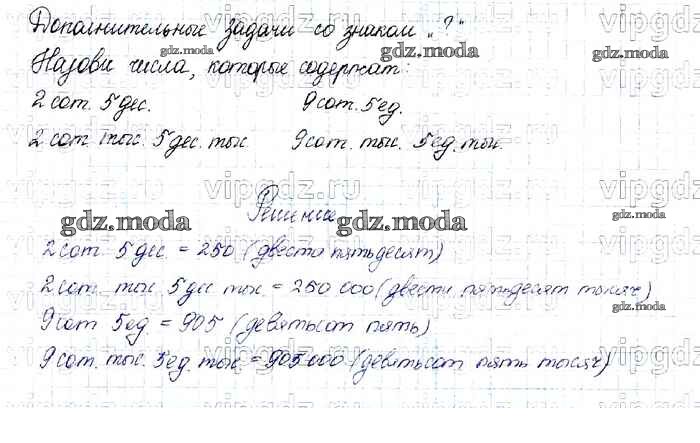 Дополнительные задачи со знаком „?"
Назови числа, которые содержат:
2 сот. 5 дес. 9 сот. 5 ед.
2 сот. тыс. 5 дес. тыс. 9 сот. тыс. 5 ед. тыс.
Решение
2 сот 5 дес. = 250 (двести пятьдесят)
2 сот. тыс. 5 дес тыс. = 250 000 (двести пятьдесят тысяч)
9 сот 5 ед. = 905 (девятьсот пять)
9 сот. тыс. 5 ед. тыс. = 905 000 (девятьсот пять тысяч)
vipgdz.ru
gdz.moda